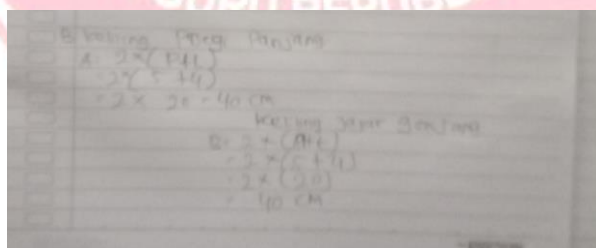 Keliling Persegi Panjang
A. 2 × (P+L)
2 × (5 + 4)
= 2 × 20 = 40 cm
Keliling Jajar Genjang
= 2 × (
= 2 × (5 + 4)
= 2 × (20)
= 40 cm